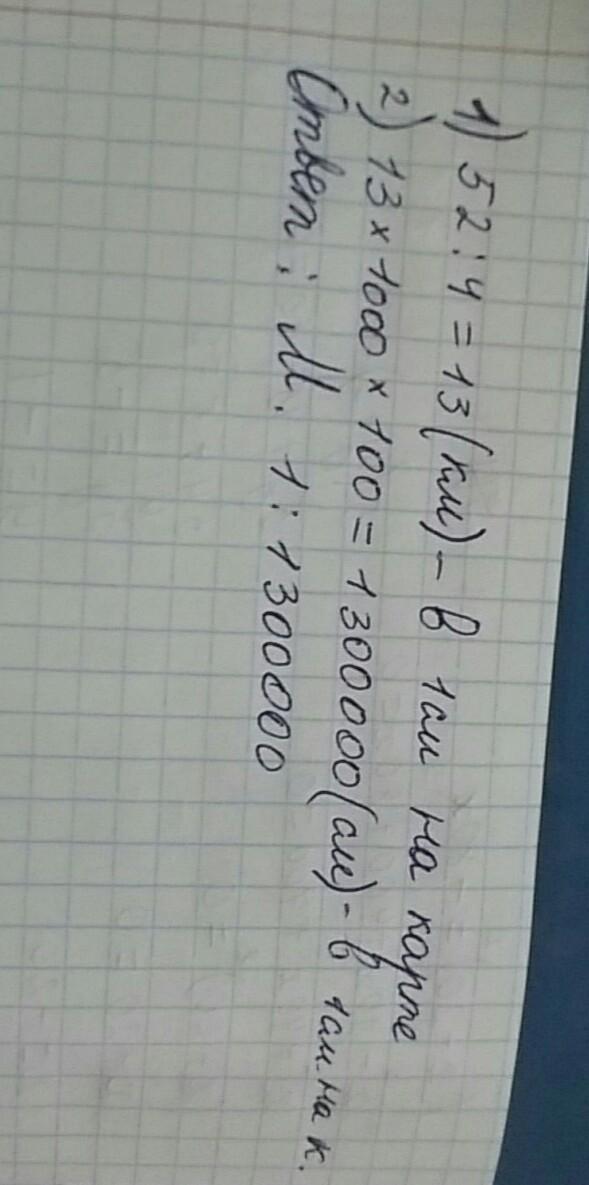 1) 52:4=13(км)- в 1см на карте
2) 13×1000×100=1300000(см)- в 1см на к.
Ответ: М. 1:1300000